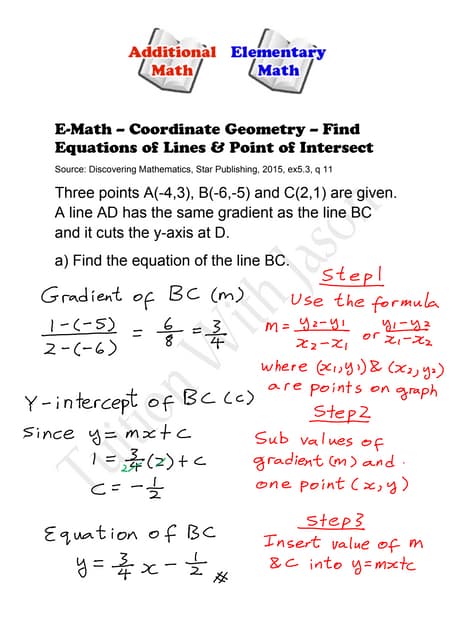 Additional Math
Elementary Math
E-Math – Coordinate Geometry – Find
Equations of Lines & Point of Intersect
Source: Discovering Mathematics, Star Publishing, 2015, ex5.3, q 11
Three points A(-4,3), B(-6,-5) and C(2,1) are given.
A line AD has the same gradient as the line BC
and it cuts the y-axis at D.
a) Find the equation of the line BC.
Gradient of BC (m)
1-(-5)/2-(-6) = 6/8 = 3/4
Step1
Use the formula
m = y₂-y₁/x₂-x₁ or y₁-y₂/x₁-x₂
where (x₁,y₁) & (x₂,y₂)
are points on graph
Y-intercept of BC (c)
Since y = mx + c
1 = 3/4(2) + c
c = -1/2
Step2
Sub values of
gradient (m) and
one point (x, y)
Equation of BC
y = 3/4 x - 1/2
Step3
Insert value of m
& C into y=mx+c
Tuition With Jason